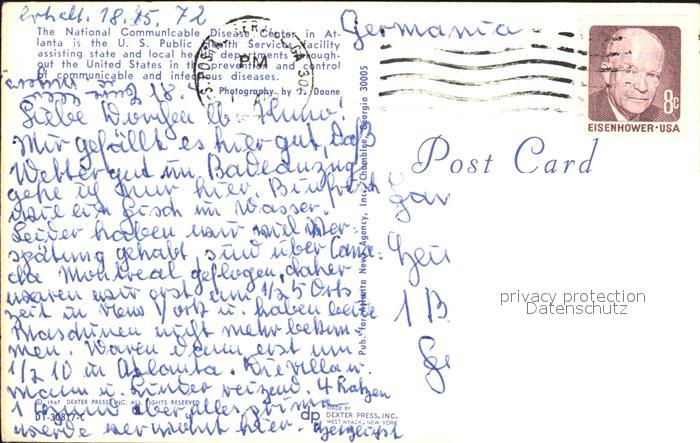 erhalt. 18.15.72
Germania
The National Communicable Disease Center in At-
lanta is the U. S. Public Health Service facility
assisting state and local health departments through-
out the United States in the prevention and control
of communicable and infectious diseases.
Photography by Doane
PM
GA
EISENHOWER·USA
8c
Post Card
18.
Liebe
Mir gefällt es hier gut, das
Wetter gut im Badeanzug
gehe ich nur hier. Bin frech
wie ein Fisch im Wasser.
Leider haben wir viel Ver-
spätung gehabt, sind über Cana-
da Montreal geflogen, daher
waren wir erst um 1/2 5 Orts
zeit in New York u. haben keine
Maschinen nicht mehr bekom-
men. Waren dann erst um
1/2 10 in Atlanta. Die Villa u.
Mann u. Kinder reizend. 4 Katzen
1 Hund aber alles prima
werde verwöhnt hier. Herzlichst
Pub. for Atlanta News Agency, Inc., Chamblee, Georgia 30005
1 B
privacy protection
Datenschutz
© 1967 DEXTER PRESS, INC. ALL RIGHTS RESERVED
DT-30817-C
dp
MADE BY
DEXTER PRESS, INC.
WEST NYACK, NEW YORK